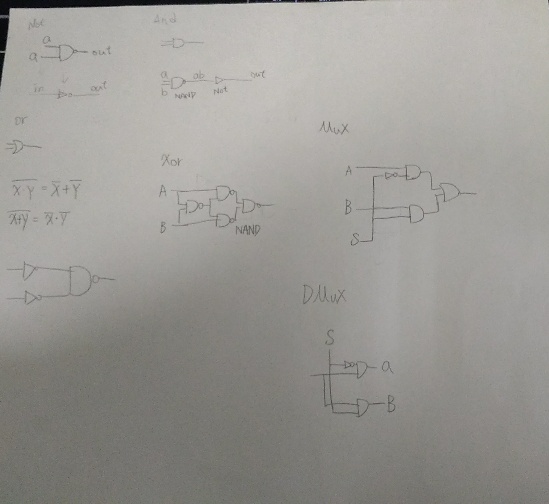 Not
a
a out
in out
And
a ab out
b NAND Not
or
X̅Y̅ = X̅+Y̅
X̅+̅Y̅ = X̅·Y̅
Xor
A
B
NAND
Mux
A
B
S
DMux
S
a
B